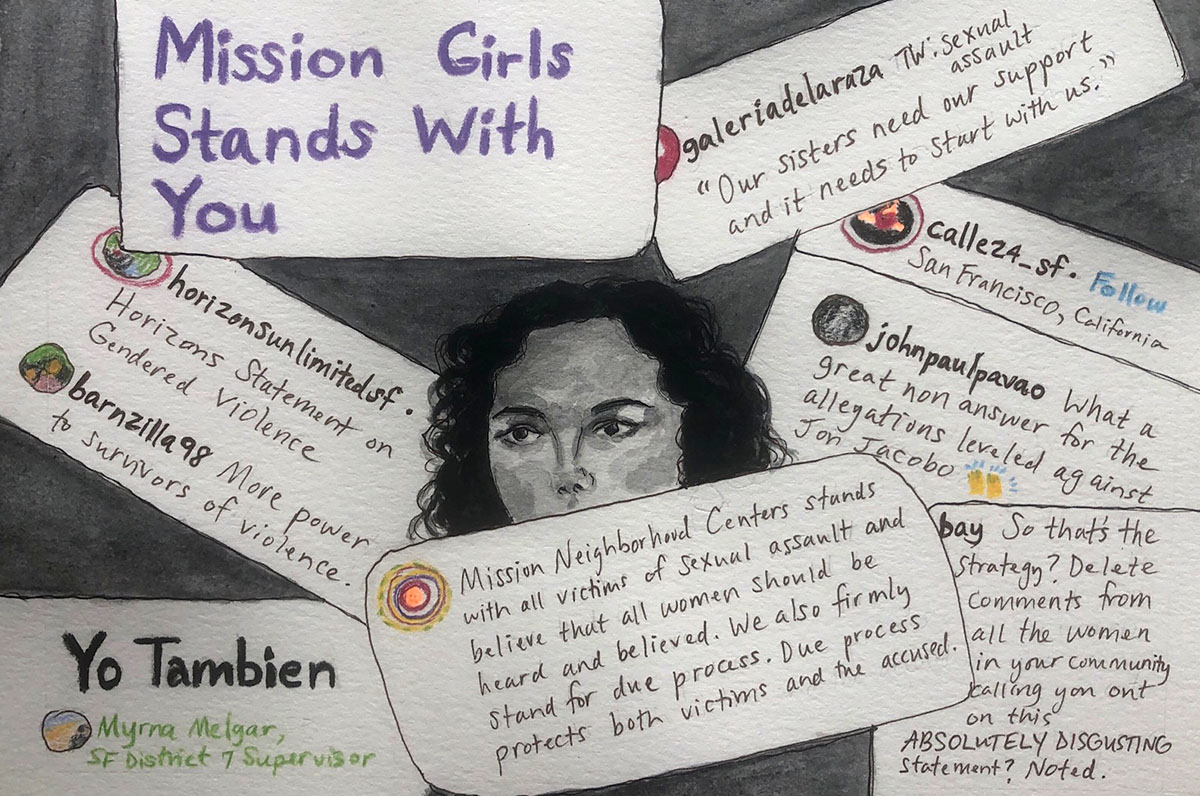 Mission Girls
Stands With
You
galeriadelaraza TW: sexual
assault
"Our sisters need our support
and it needs to start with us."
calle24_sf. Follow
San Francisco, California
johnpaulpavao What a
great non answer for the
allegations leveled against
Jon Jacobo
horizonsunlimitedsf.
Horizons Statement on
Gendered Violence
barnzilla98 More power
to survivors of violence.
Mission Neighborhood Centers stands
with all victims of sexual assault and
believe that all women should be
heard and believed. We also firmly
stand for due process. Due process
protects both victims and the accused.
bay So that's the
strategy? Delete
comments from
all the women
in your community
calling you out
on this
ABSOLUTELY DISGUSTING
statement? Noted.
Yo Tambien
Myrna Melgar,
SF District 7 Supervisor